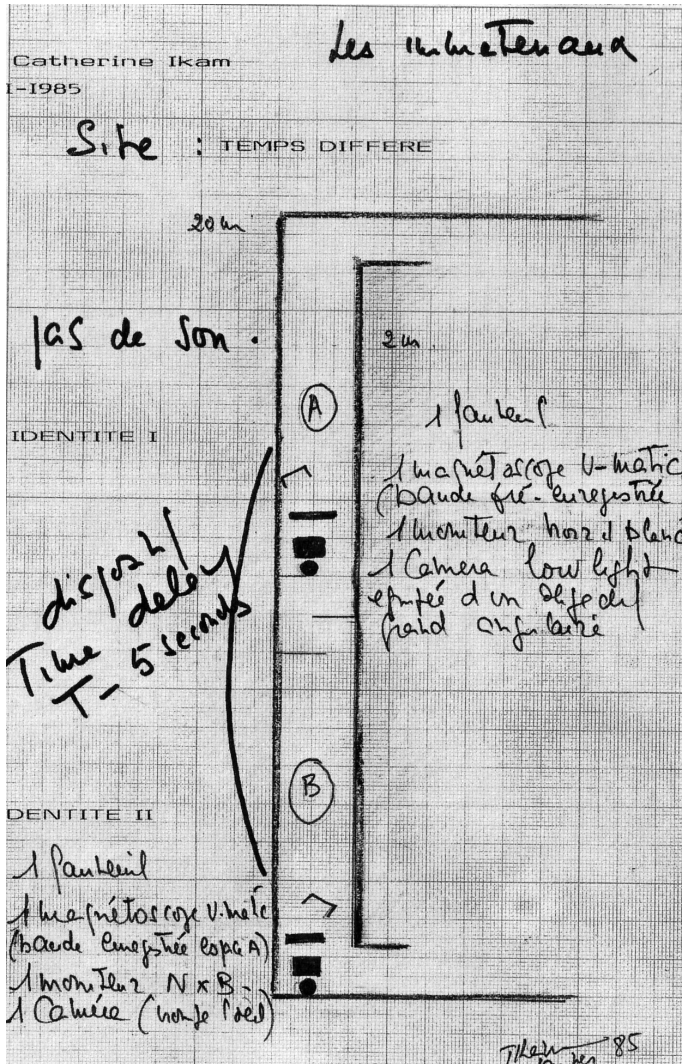 Les immateriaux
Catherine Ikam
I-1985
Site : TEMPS DIFFERE
20 m
pas de son.
2 m
A
1 fauteuil
IDENTITE I
1 magnétoscope U-matic
(bande pré-enregistrée
1 moniteur noir et blanc
1 Camera low light
équipée d'un objectif
grand angulaire
dispositif
Time delay
T - 5 seconds
B
DENTITE II
1 fauteuil
1 magnétoscope U-matic
(bande enregistrée espace A)
1 moniteur N x B -
1 Caméra
85